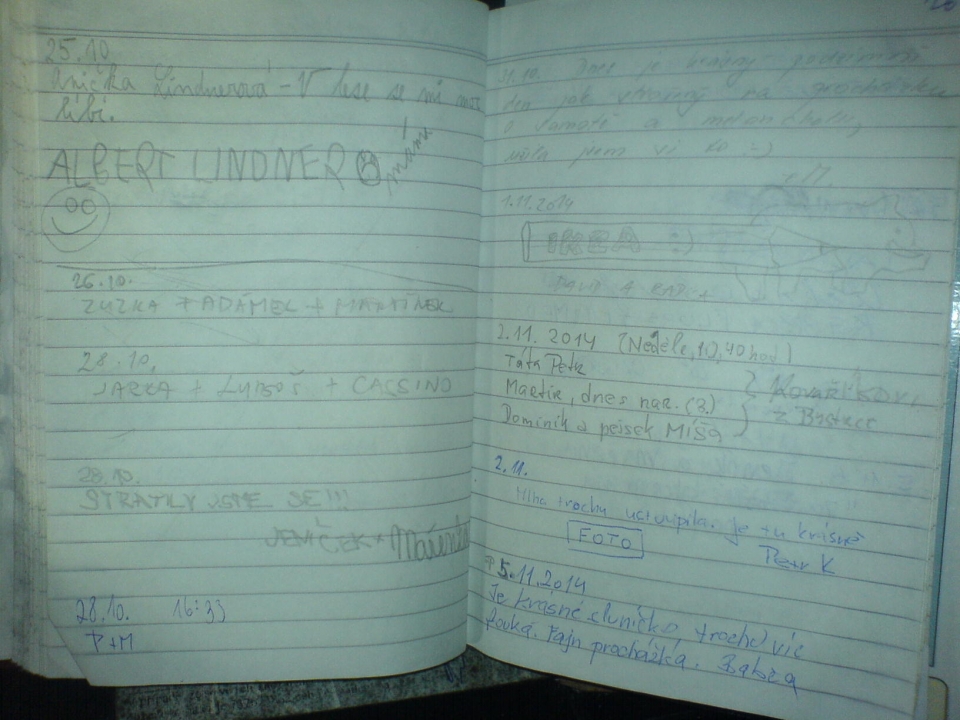 25.10
Anička Lindnerová - V lese se mi moc
líbí.
ALBERT LINDNER
26.10.
ZUZKA + ADÁMEK + MARTÍNEK
28.10.
JARKA + LUBOŠ + CASSINO
28.10.
STRATILY JSME SE!!!
JENÍČEK + Mařenka
28.10. 16:33
P+M
31.10. Dnes je krásný podzimní
den jak stvořený na procházku
o samotě a
:-)
1.11.2014
IKEA :-)
DAVID A
2.11. 2014 (Neděle, 10,40 hod)
Táta Petr
Martin, dnes nar. (3.)
Dominik a pejsek MÍŠA
Kovaříkovi
z Bystrce
2.11.
Mlha trochu ustoupila. Je tu krásně
FOTO
Petr K
5.11.2014
Je krásné sluníčko, trochu víc
fouká. Fajn procházka.